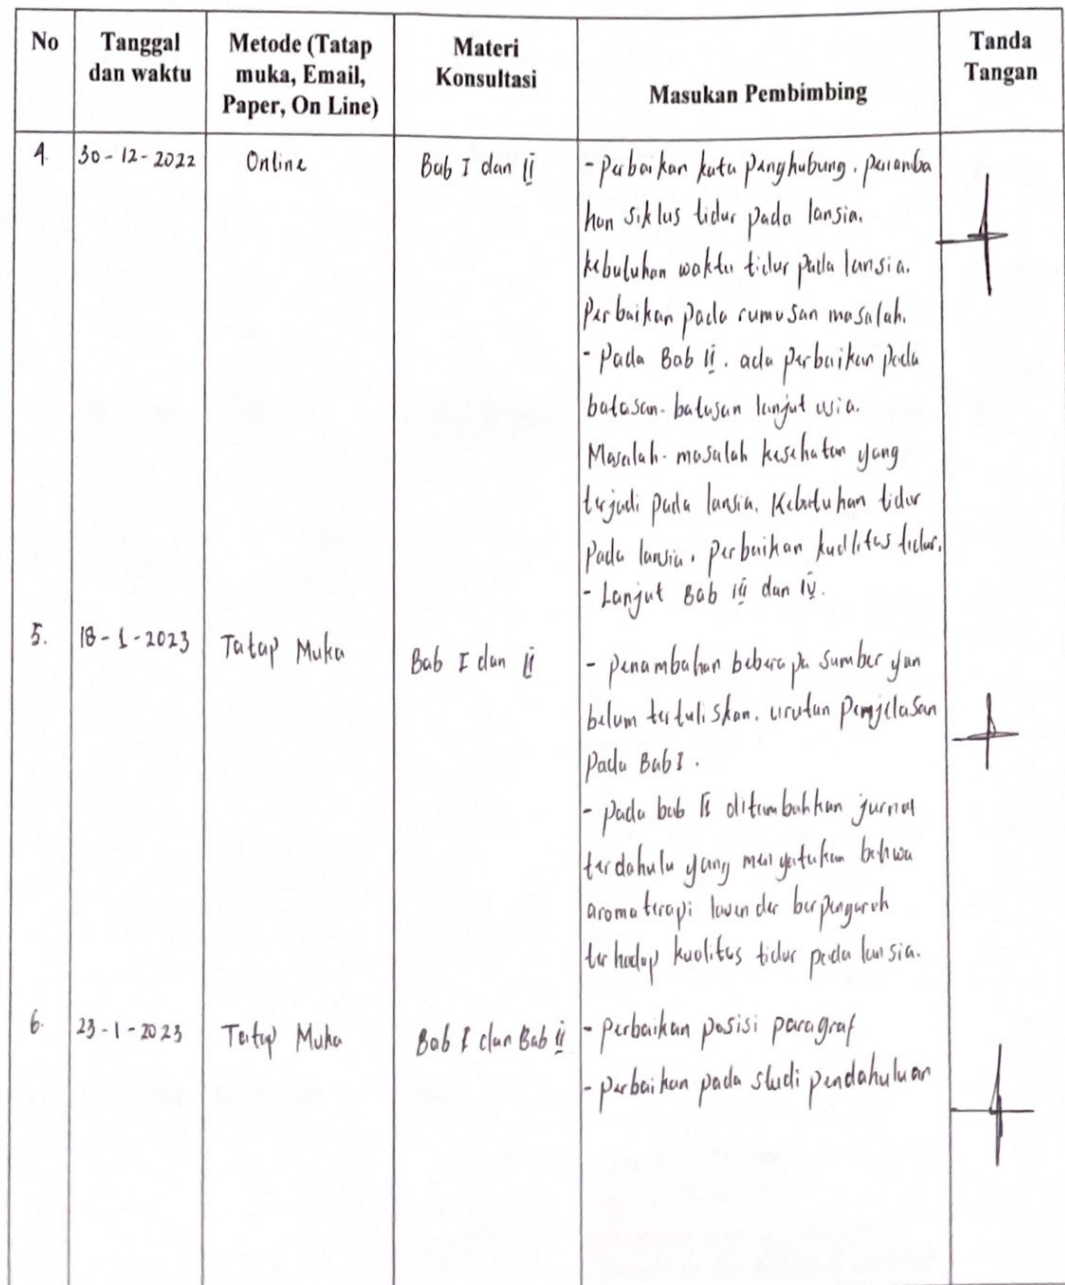 No
Tanggal
dan waktu
Metode (Tatap
muka, Email,
Paper, On Line)
Materi
Konsultasi
Masukan Pembimbing
Tanda
Tangan
4.
30-12-2022
Online
Bab I dan II
- Perbaikan kata penghubung. penamba
han siklus tidur pada lansia.
kebutuhan waktu tidur pada lansia.
Perbaikan pada rumusan masalah.
- Pada Bab II. ada perbaikan pada
batasan-batasan lanjut usia.
Masalah-masalah kesehatan yang
terjadi pada lansia. Kebutuhan tidur
Pada lansia. Perbaikan kualitas tidur.
- Lanjut Bab III dan IV.
5.
18-1-2023
Tatap Muka
Bab I dan II
- penambahan beberapa sumber yan
belum tertuliskan. urutan Penjelasan
Pada Bab I.
- pada bab II ditambahkan jurnal
terdahulu yang menyatakan bahwa
aromaterapi lavender berpengaruh
terhadap kualitas tidur pada lansia.
6.
23-1-2023
Tatap Muka
Bab I dan Bab II
- Perbaikan posisi paragraf
- perbaikan pada studi pendahuluan